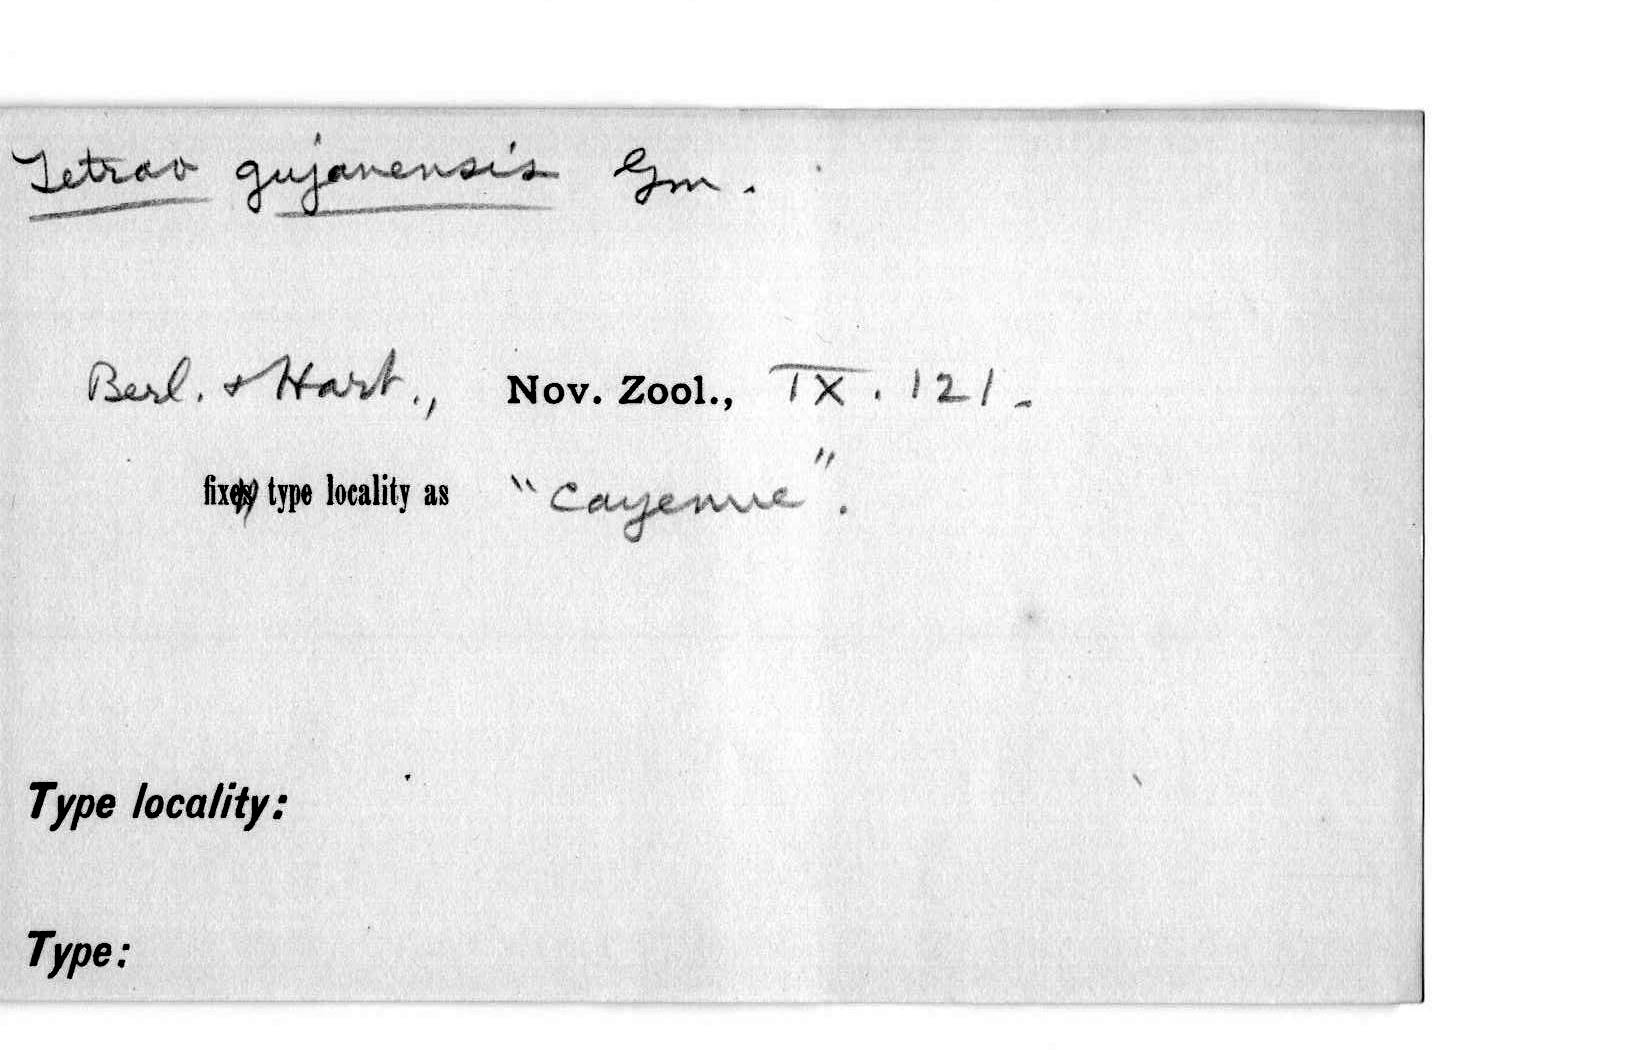 Tetrao gujanensis Gm.
Berl. & Hart., Nov. Zool., IX. 121.
fix type locality as "Cayenne".
Type locality:
Type: